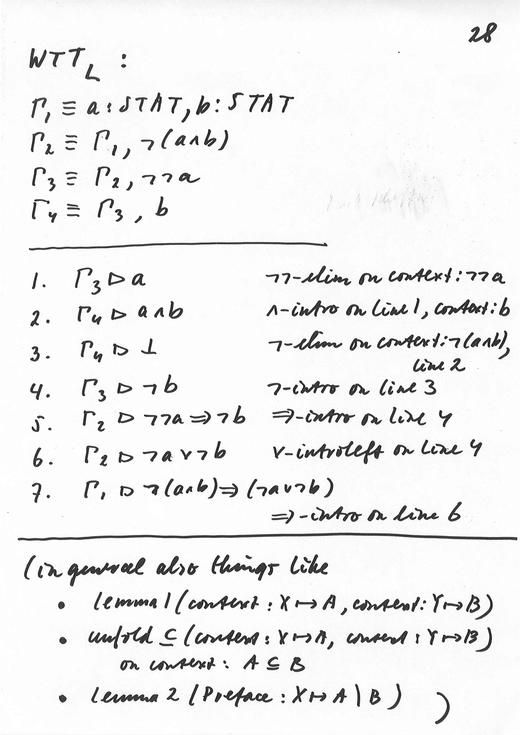 28
WTT_L :
Γ₁ ≡ a : STAT, b : STAT
Γ₂ ≡ Γ₁, ¬(a∧b)
Γ₃ ≡ Γ₂, ¬¬a
Γ₄ ≡ Γ₃, b
1. Γ₃ ▷ a ¬¬-elim on context: ¬¬a
2. Γ₄ ▷ a∧b ∧-intro on line 1, context: b
3. Γ₄ ▷ ⊥ ¬-elim on context: ¬(a∧b),
line 2
4. Γ₃ ▷ ¬b ¬-intro on line 3
5. Γ₂ ▷ ¬¬a ⇒ ¬b ⇒-intro on line 4
6. Γ₂ ▷ ¬a ∨ ¬b ∨-introleft on line 4
7. Γ₁ ▷ ¬(a∧b) ⇒ (¬a∨¬b)
⇒-intro on line 6
(in general also things like
• lemma 1 (context : X ↦ A, context: Y ↦ B)
• unfold ⊆ (context : X ↦ A, context : Y ↦ B)
on context : A ⊆ B
• lemma 2 (Preface : X ↦ A | B) )